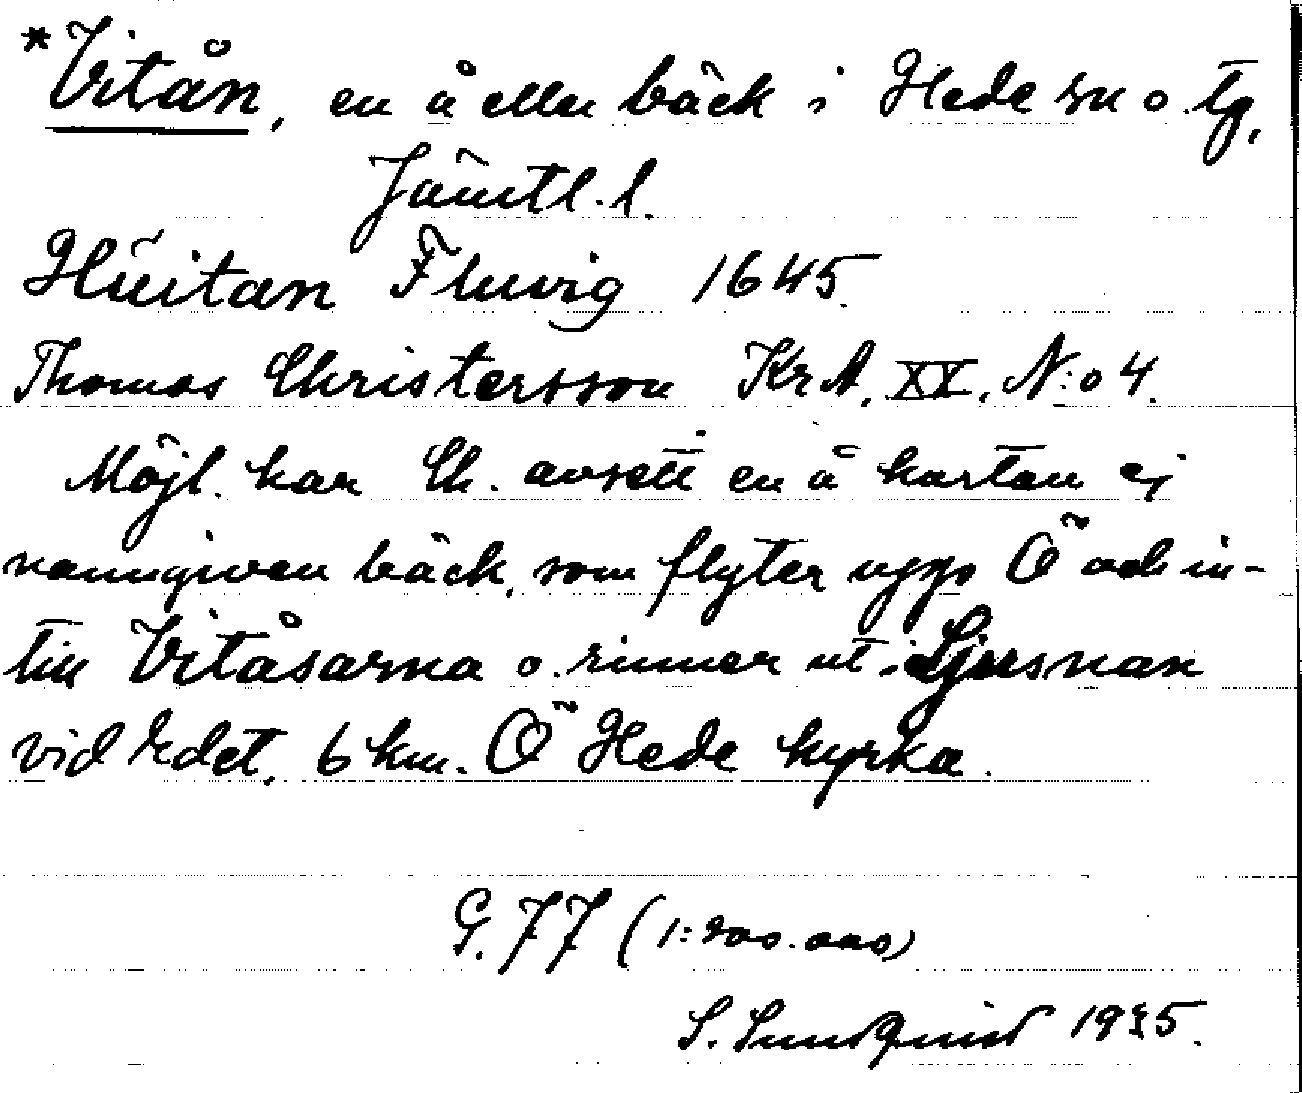 *Vitån, en å eller bäck i Hede sn o tg,
Jämtl. l.
Hũitan Fluvig 1645.
Thomas Christersson KrA. XX. N:o 4.
Möjl. har Ch. avsett en å kartan ej
namngiven bäck, som flyter upp Ö och in-
till Vitåsarna o. rinner ut i Ljusnan
vid edet, 6 km. Ö Hede kyrka.
G. 77 (1:200.000)
S. Sundquist 1935.